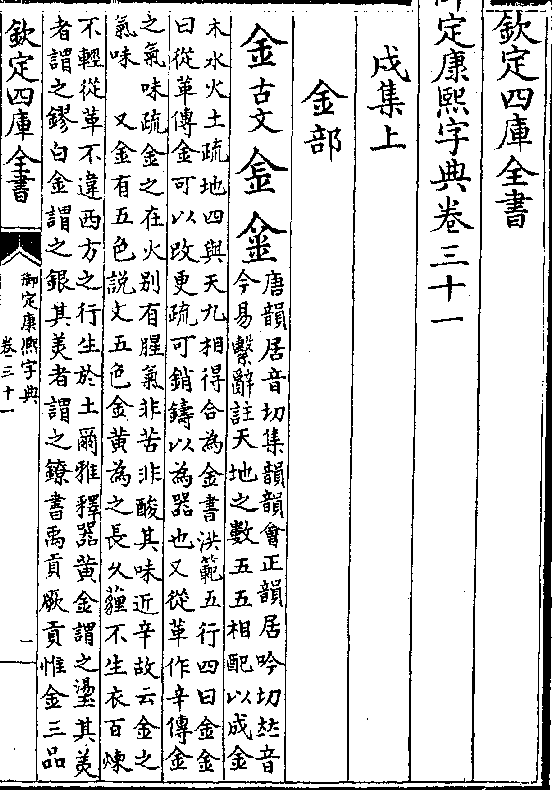 欽定四庫全書
御定康熙字典卷三十一
戌集上
金部
金古文𨤾𨥄唐韻居音切集韻韻會正韻居吟切𠀤音
今易繫辭註天地之數五五相配以成金
木水火土疏地四與天九相得合為金書洪範五行四曰金金
曰從革傳金可以改更疏可銷鑄以為器也又從革作辛傳金
之氣味疏金之在火别有腥氣非苦非酸其味近辛故云金之
氣味 又金有五色説文五色金黄為之長久薶不生衣百煉
不輕從革不違西方之行生於土爾雅釋器黄金謂之璗其美
者謂之鏐白金謂之銀其美者謂之鐐書禹貢厥貢惟金三品
欽定四庫全書
御定康熙字典
卷三十一
一